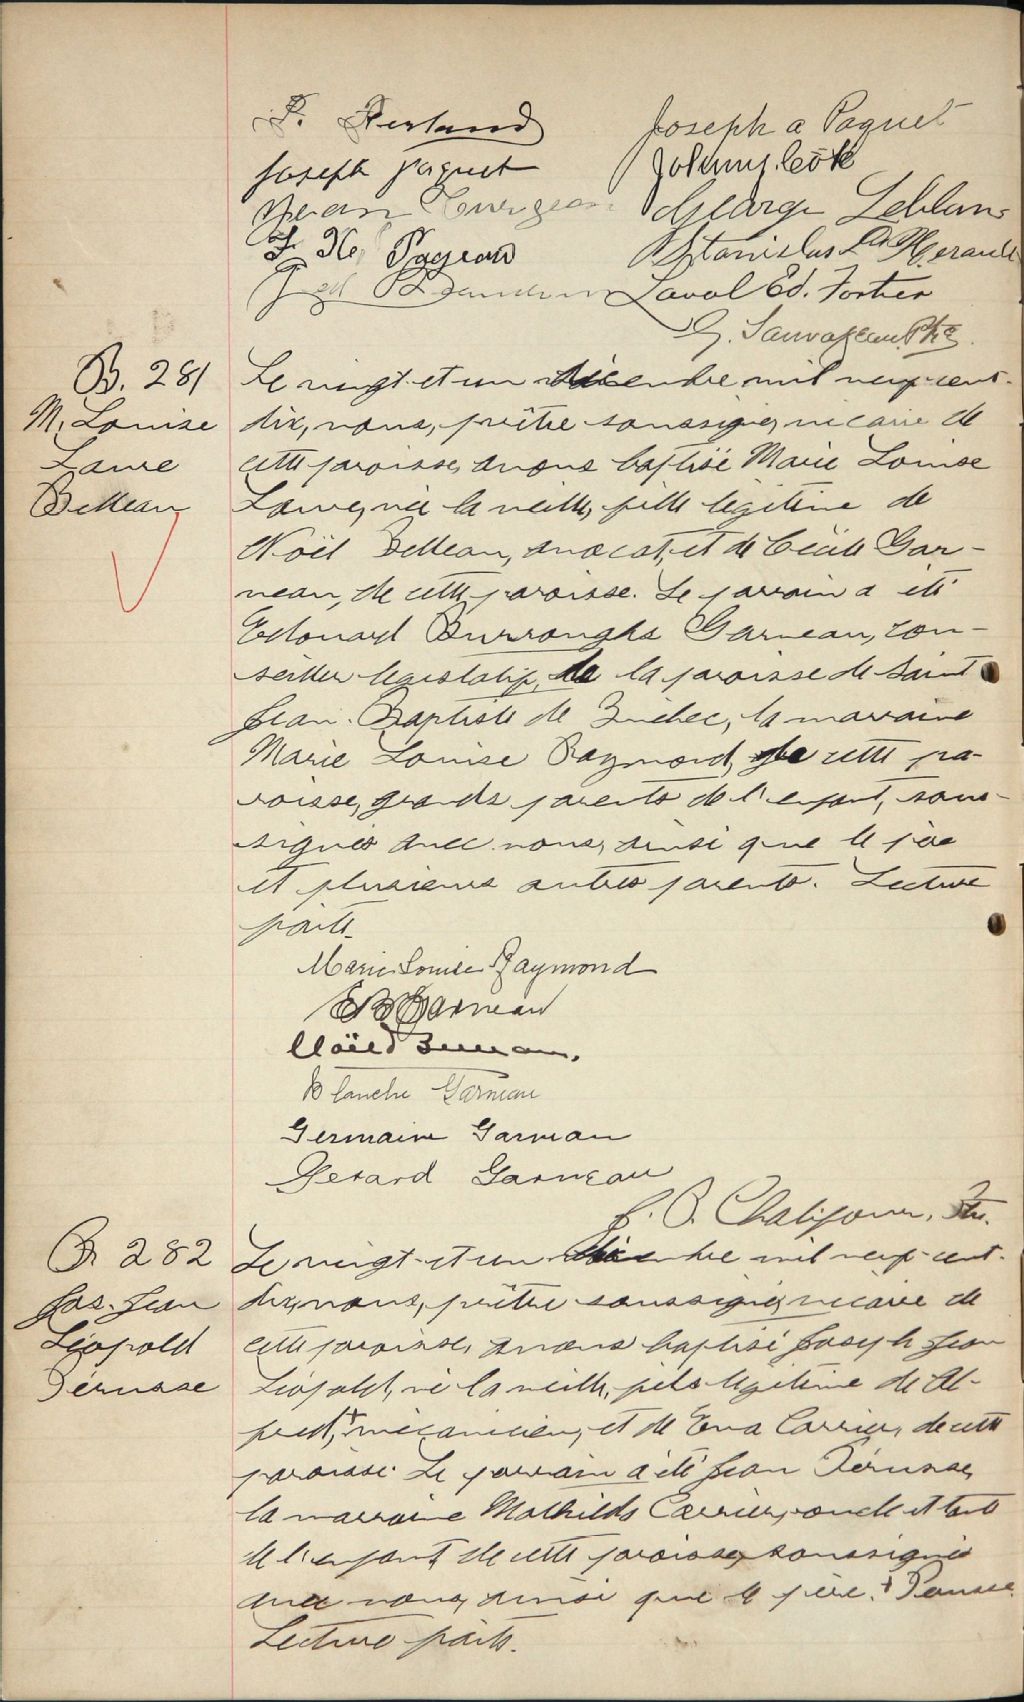 Joseph a Paquet
Joseph Paquet
Johnny Coté
Jean Turgeon
George Leblanc
Pageau
Stanislas
Laval Ed. Fortier
G. Sauvageau Ptre
B. 281
M. Louise
Laure
Belleau
Le vingt-et-un décembre mil neuf-cent-
dix, nous, prêtre soussigné, vicaire de
cette paroisse, avons baptisé Marie Louise
Laure, née la veille, fille légitime de
Noël Belleau, avocat, et de Cécile Gar-
neau, de cette paroisse. Le parrain a été
Edouard Burroughs Garneau, con-
seiller législatif, de la paroisse de Saint
Jean-Baptiste de Québec, la marraine
Marie Louise Raymond, de cette pa-
roisse, grands parents de l'enfant, sous-
signés avec nous, ainsi que le père
et plusieurs autres parents. Lecture
faite.
Marie Louise Raymond
E B Garneau
Noël Belleau.
Blanche Garneau
Germaine Garneau
Gerard Garneau
J. B. Chalifour, Ptr.
B. 282
Jos. Jean
Léopold
Pérusse
Le vingt-et-un décembre mil neuf-cent-
dix, nous, prêtre soussigné, vicaire de
cette paroisse, avons baptisé Joseph Jean
Léopold, né la veille, fils légitime de Al-
fred,+ mécanicien, et de Eva Carrier, de cette
paroisse. Le parrain a été Jean Pérusse,
la marraine Mathilda Carrier, oncle et tante
de l'enfant, de cette paroisse, soussignés
avec nous, ainsi que le père. + Perusse
Lecture faite.